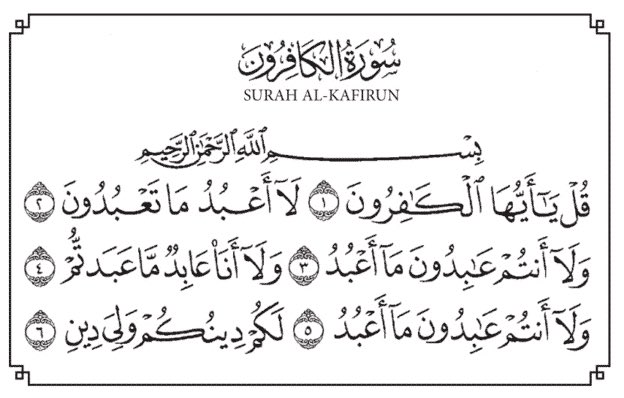 سُورَةُ الكَافِرُونَ
SURAH AL-KAFIRUN
بِسْمِ اللَّهِ الرَّحْمَٰنِ الرَّحِيمِ
قُلْ يَٰٓأَيُّهَا ٱلْكَٰفِرُونَ ١ لَآ أَعْبُدُ مَا تَعْبُدُونَ ٢
وَلَآ أَنتُمْ عَٰبِدُونَ مَآ أَعْبُدُ ٣ وَلَآ أَنَا۠ عَابِدٌ مَّا عَبَدتُّمْ ٤
وَلَآ أَنتُمْ عَٰبِدُونَ مَآ أَعْبُدُ ٥ لَكُمْ دِينُكُمْ وَلِىَ دِينِ ٦